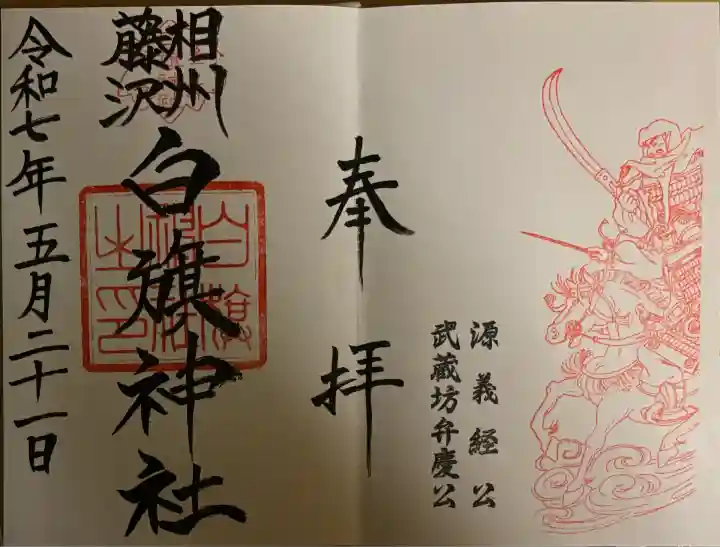 奉拝
源義経公
武蔵坊弁慶公
相州
藤沢
白旗神社
白旗神社之印
令和七年五月二十一日